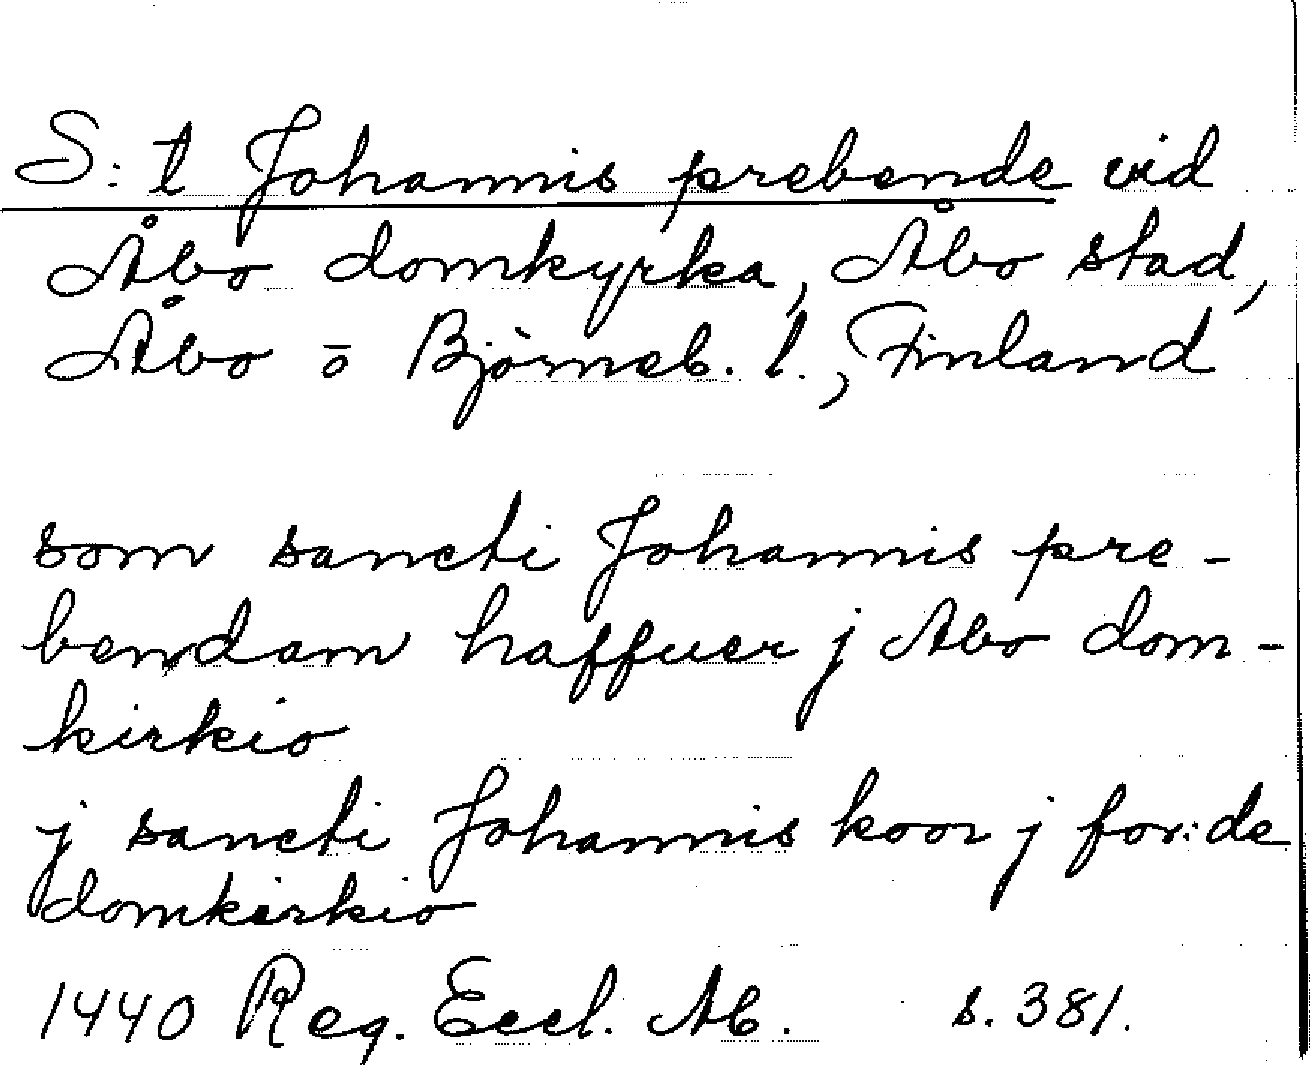 S:t Johannis prebende vid
Åbo domkyrka, Åbo stad,
Åbo o Björneb. l., Finland
som sancti Johannis pre-
bendam haffuer j Abo dom-
kirkio
j sancti Johannis koor j for:de
domkirkio
1440 Reg. Eccl. Ab. s. 381.